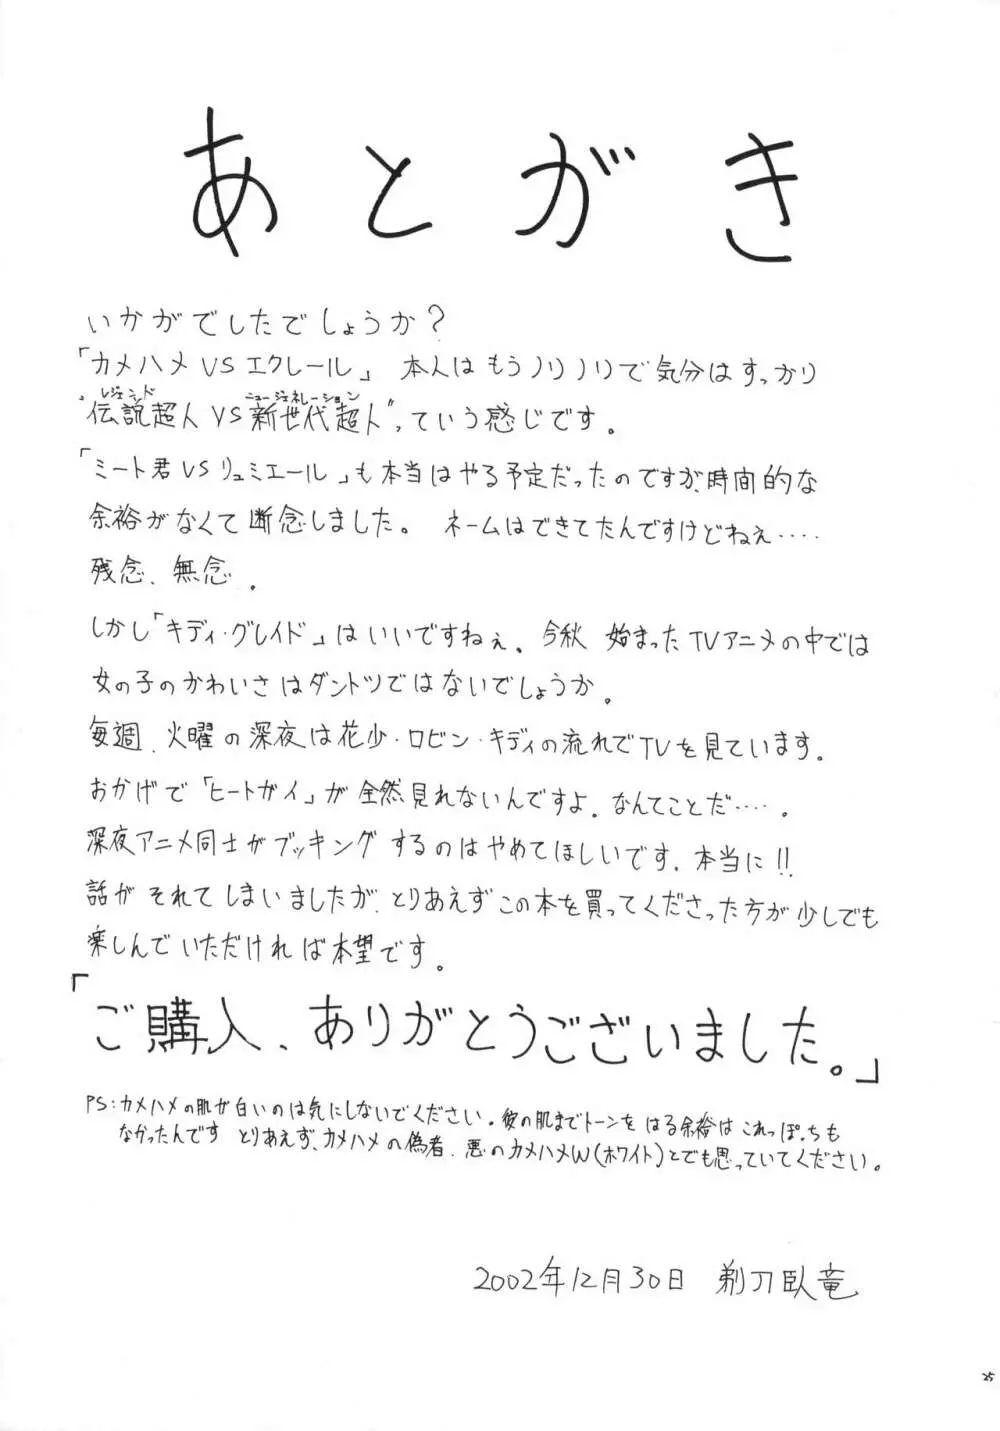 あとがき
いかがでしたでしょうか？
「カメハメVSエクレール」 本人はもうノリノリで気分はすっかり
レジェンド ニュージェネレーション
"伝説超人VS新世代超人"っていう感じです。
「ミート君VSリュミエール」も本当はやる予定だったのですが、時間的な
余裕がなくて断念しました。 ネームはできてたんですけどねぇ・・・・
残念、無念。
しかし「キディ・グレイド」はいいですねぇ。今秋 始まったTVアニメの中では
女の子のかわいさはダントツではないでしょうか。
毎週、火曜の深夜は花少・ロビン・キディの流れでTVを見ています。
おかげで「ヒートガイ」が全然見れないんですよ。なんてことだ・・・・。
深夜アニメ同士がブッキングするのはやめてほしいです。本当に!!
話がそれてしまいましたが、とりあえずこの本を買ってくださった方が少しでも
楽しんでいただければ本望です。
「ご購入、ありがとうございました。」
PS:カメハメの肌が白いのは気にしないでください。彼の肌までトーンをはる余裕はこれっぽっちも
なかったんです とりあえず、カメハメの偽者、悪のカメハメW(ホワイト)とでも思っていてください。
2002年12月30日 剃刀臥竜
25